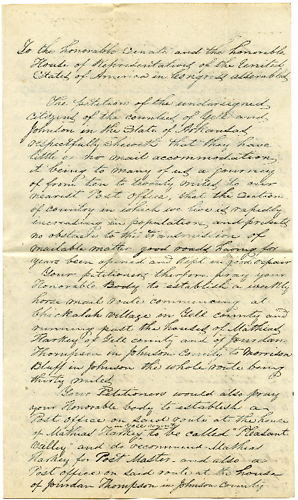 To the honorable Senate and the honorable
House of Representatives of the United
States of America in Congress assembled
The Petition of the undersigned
citizens of the counties of Yell and
Johnson in the State of Arkansas
respectfully sheweth that they have
little or no mail accommodation,
it being to many of us a journey
of from ten to twenty miles to our
nearest Post office, that the section
of country in which we live is rapidly
increasing in population, and presents
no obstacle to the transmission of
mailable matter good roads having for
years been opened and kept in good repair
Your petitioners therfore pray your
Honorable Body to establish a weekly
horse mail route commencing at
Chickalah village in Yell county and
running past the houses of Mathias
Harkey of Yell county and of Jourdan
Thompson in Johnson County to Morrison
Bluff in Johnson the whole route being
thirty miles
Your Petitioners would also pray
your Honorable body to establish a
Post office on said route at the house
of Mathias Harkey Yell county to be called Pleasant
Valley and do recommend Mathias
Harkey for Post Master and also a
Post office on said route at the house
of Jourdan Thompson in Johnson County